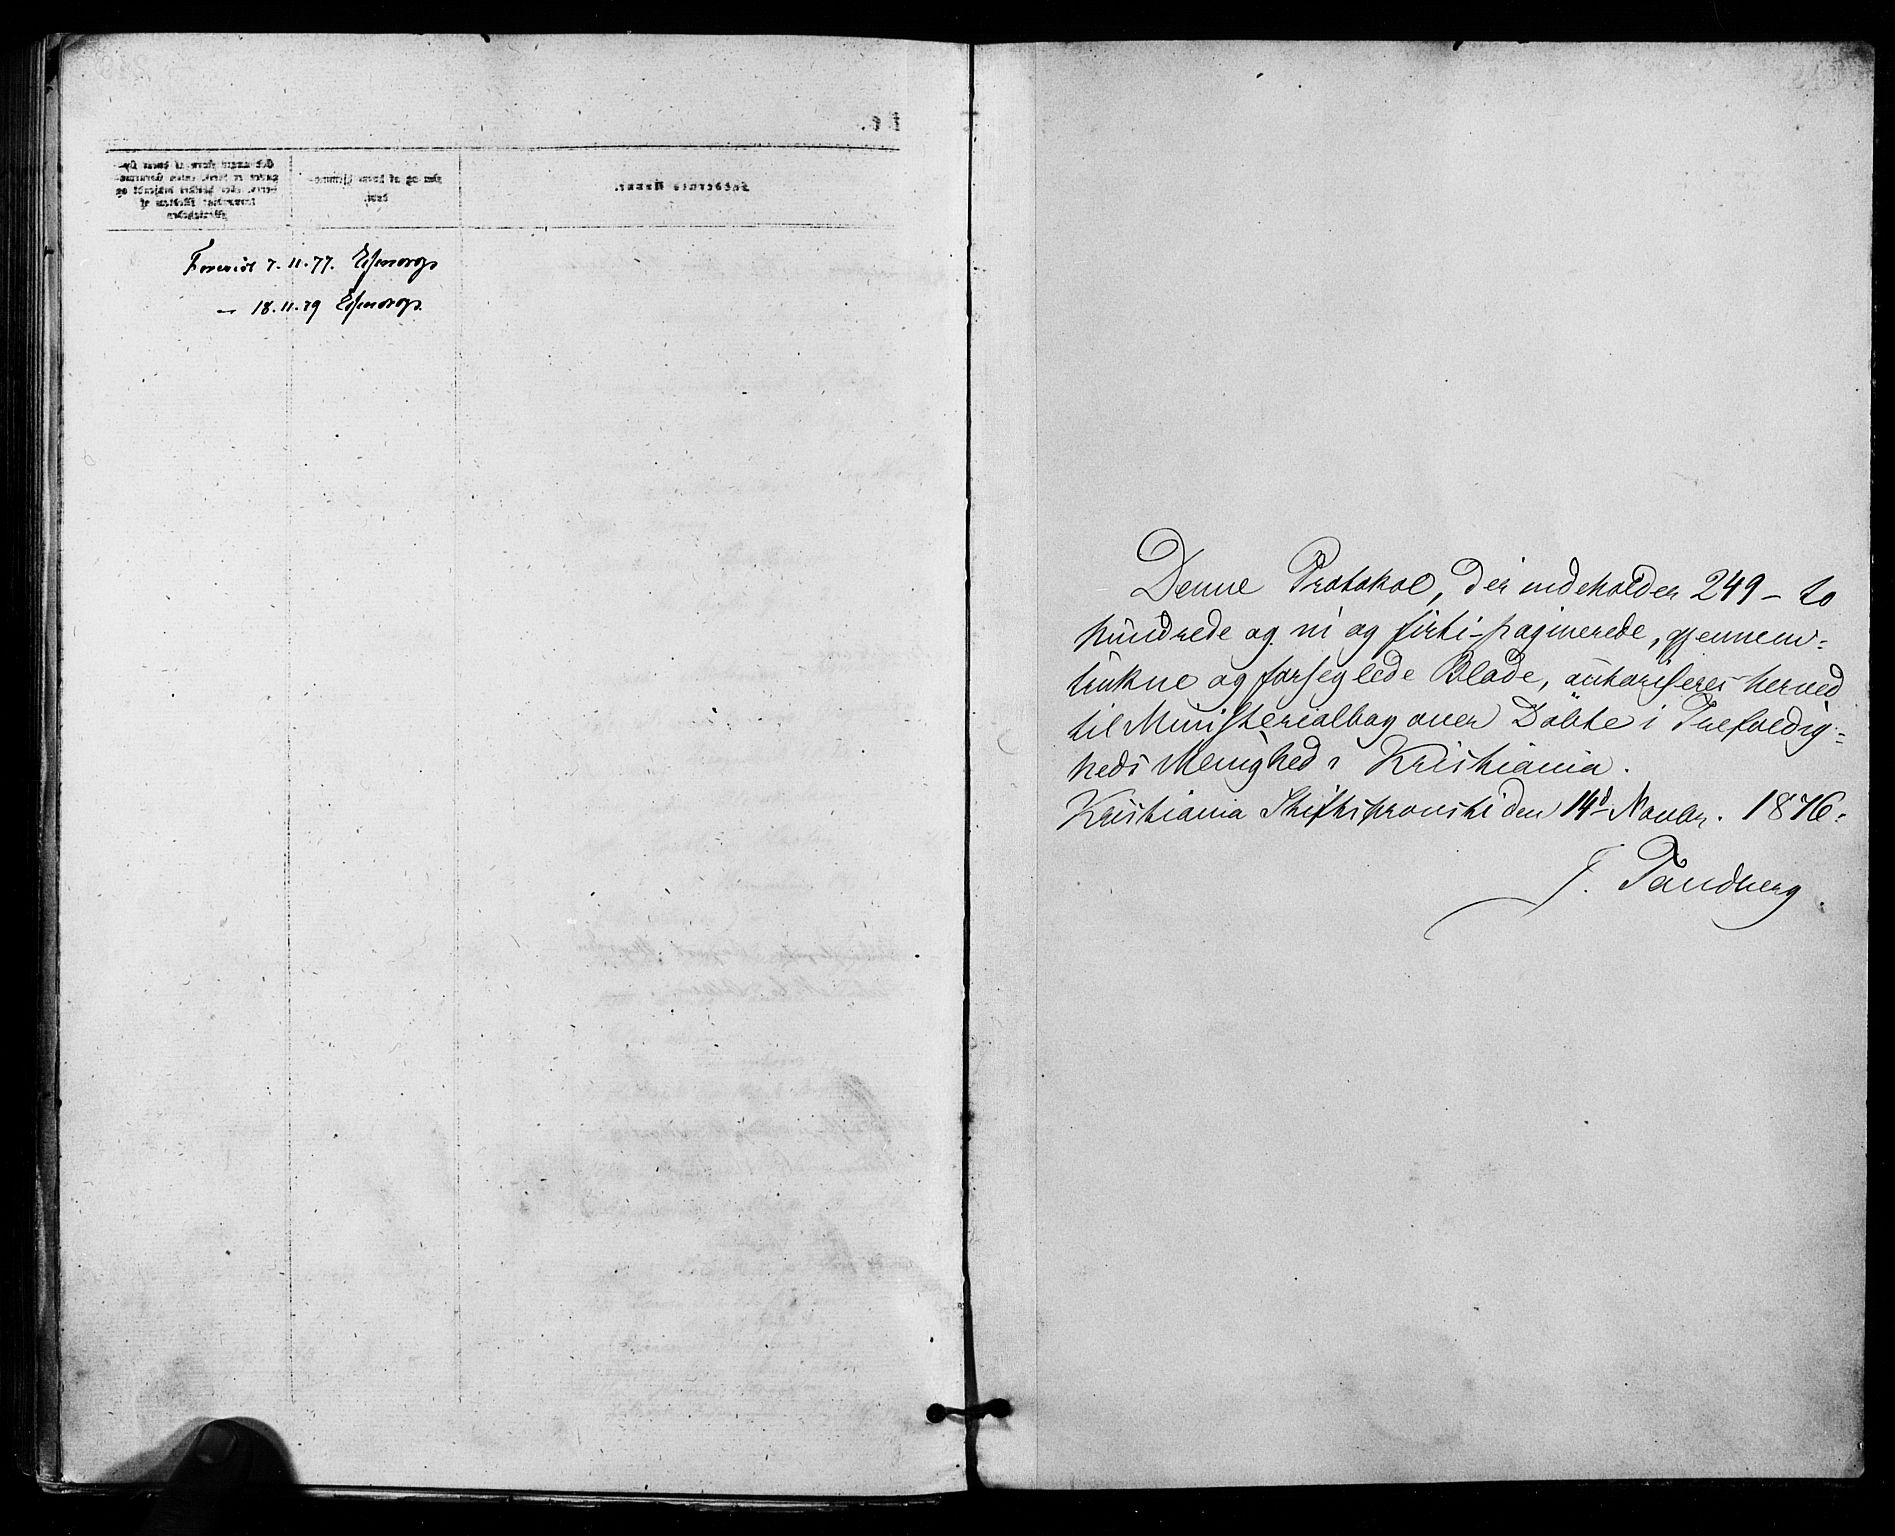 Forevist 7.11.77. Essendrop
— 18.11.79 Essendrop.
Denne Protokol, der indeholder 249 – to
hundrede og ni og firti – paginerede, gjennem-
trukne og forseglede Blade, autoriseres herved
til Ministerialbog over Döbte i Trefoldig-
heds Menighed i Kristiania.
Kristiania Stiftsprovsti den 14d Novbr. 1876.
J. Tandberg.